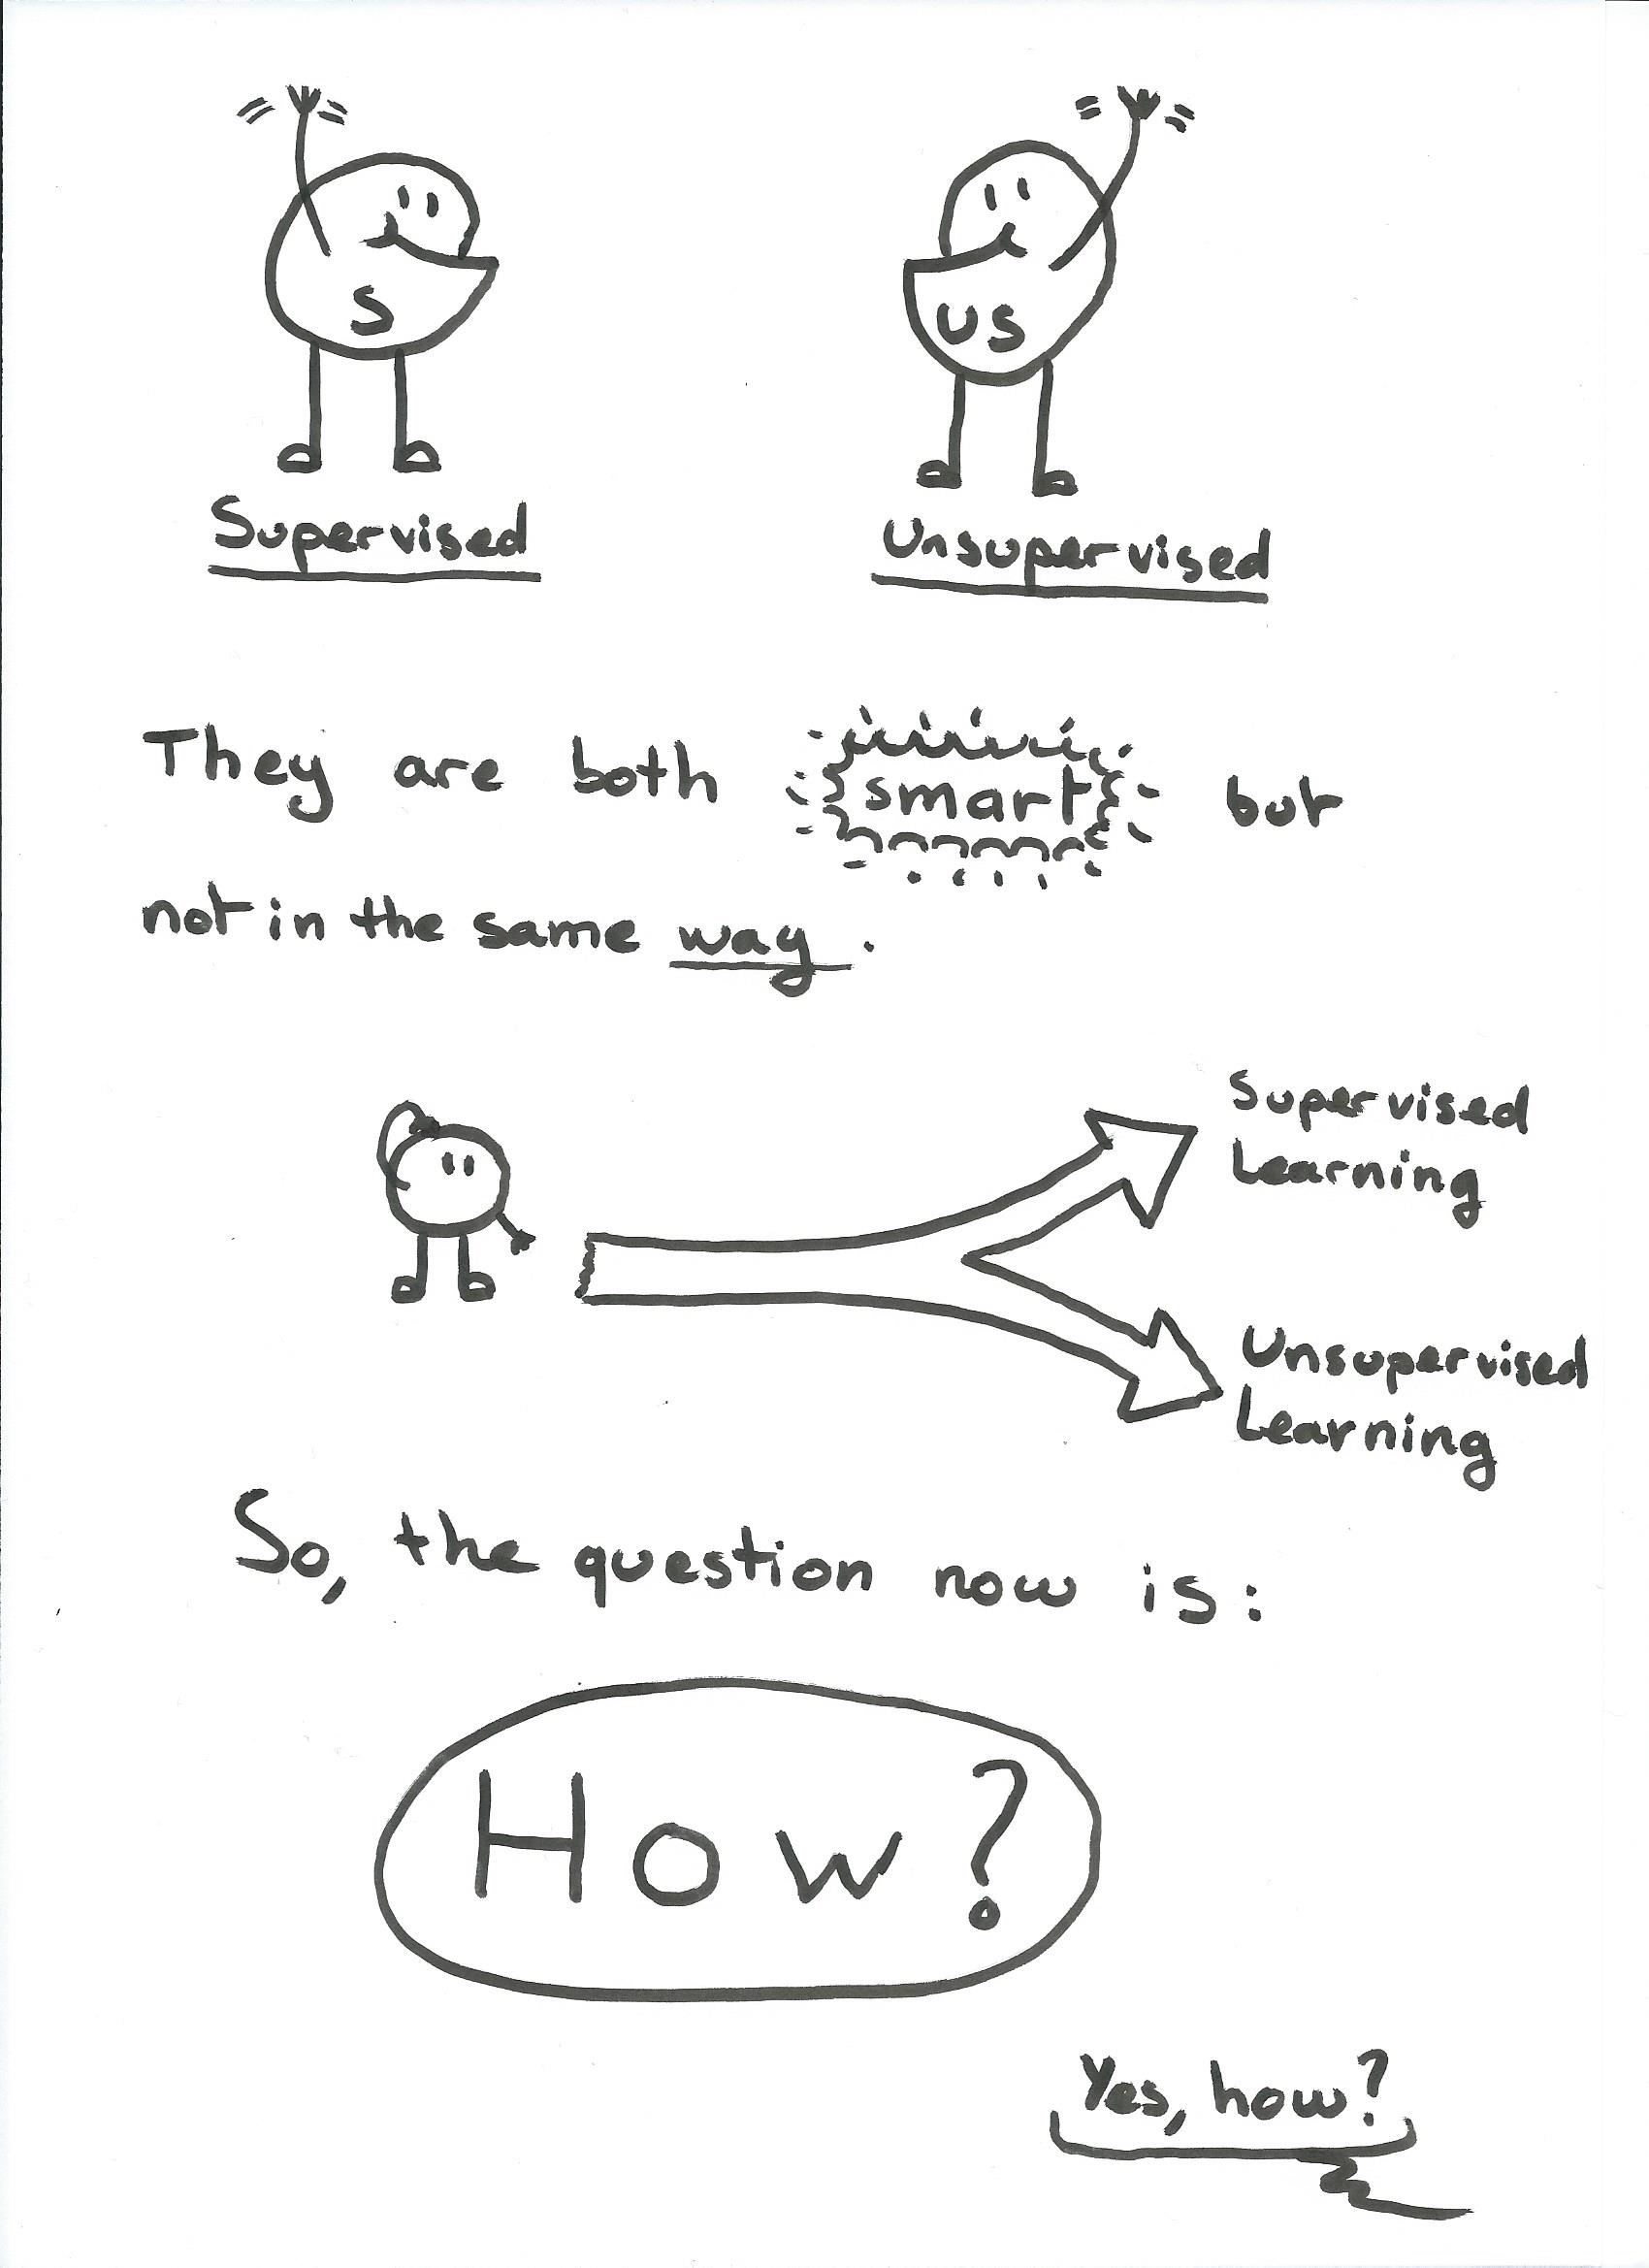 S
US
Supervised
Unsupervised
They are both smart but
not in the same way.
Supervised
Learning
Unsupervised
Learning
So, the question now is:
How?
Yes, how?